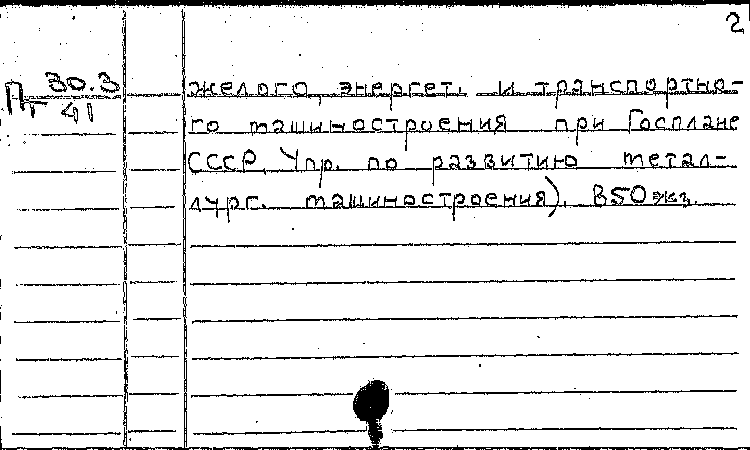 2
Пт 30.3
41
желого, энергет. и транспортно-
го машиностроения при Госплане
СССР. Упр. по развитию метал-
лург. машиностроения). 850 экз.